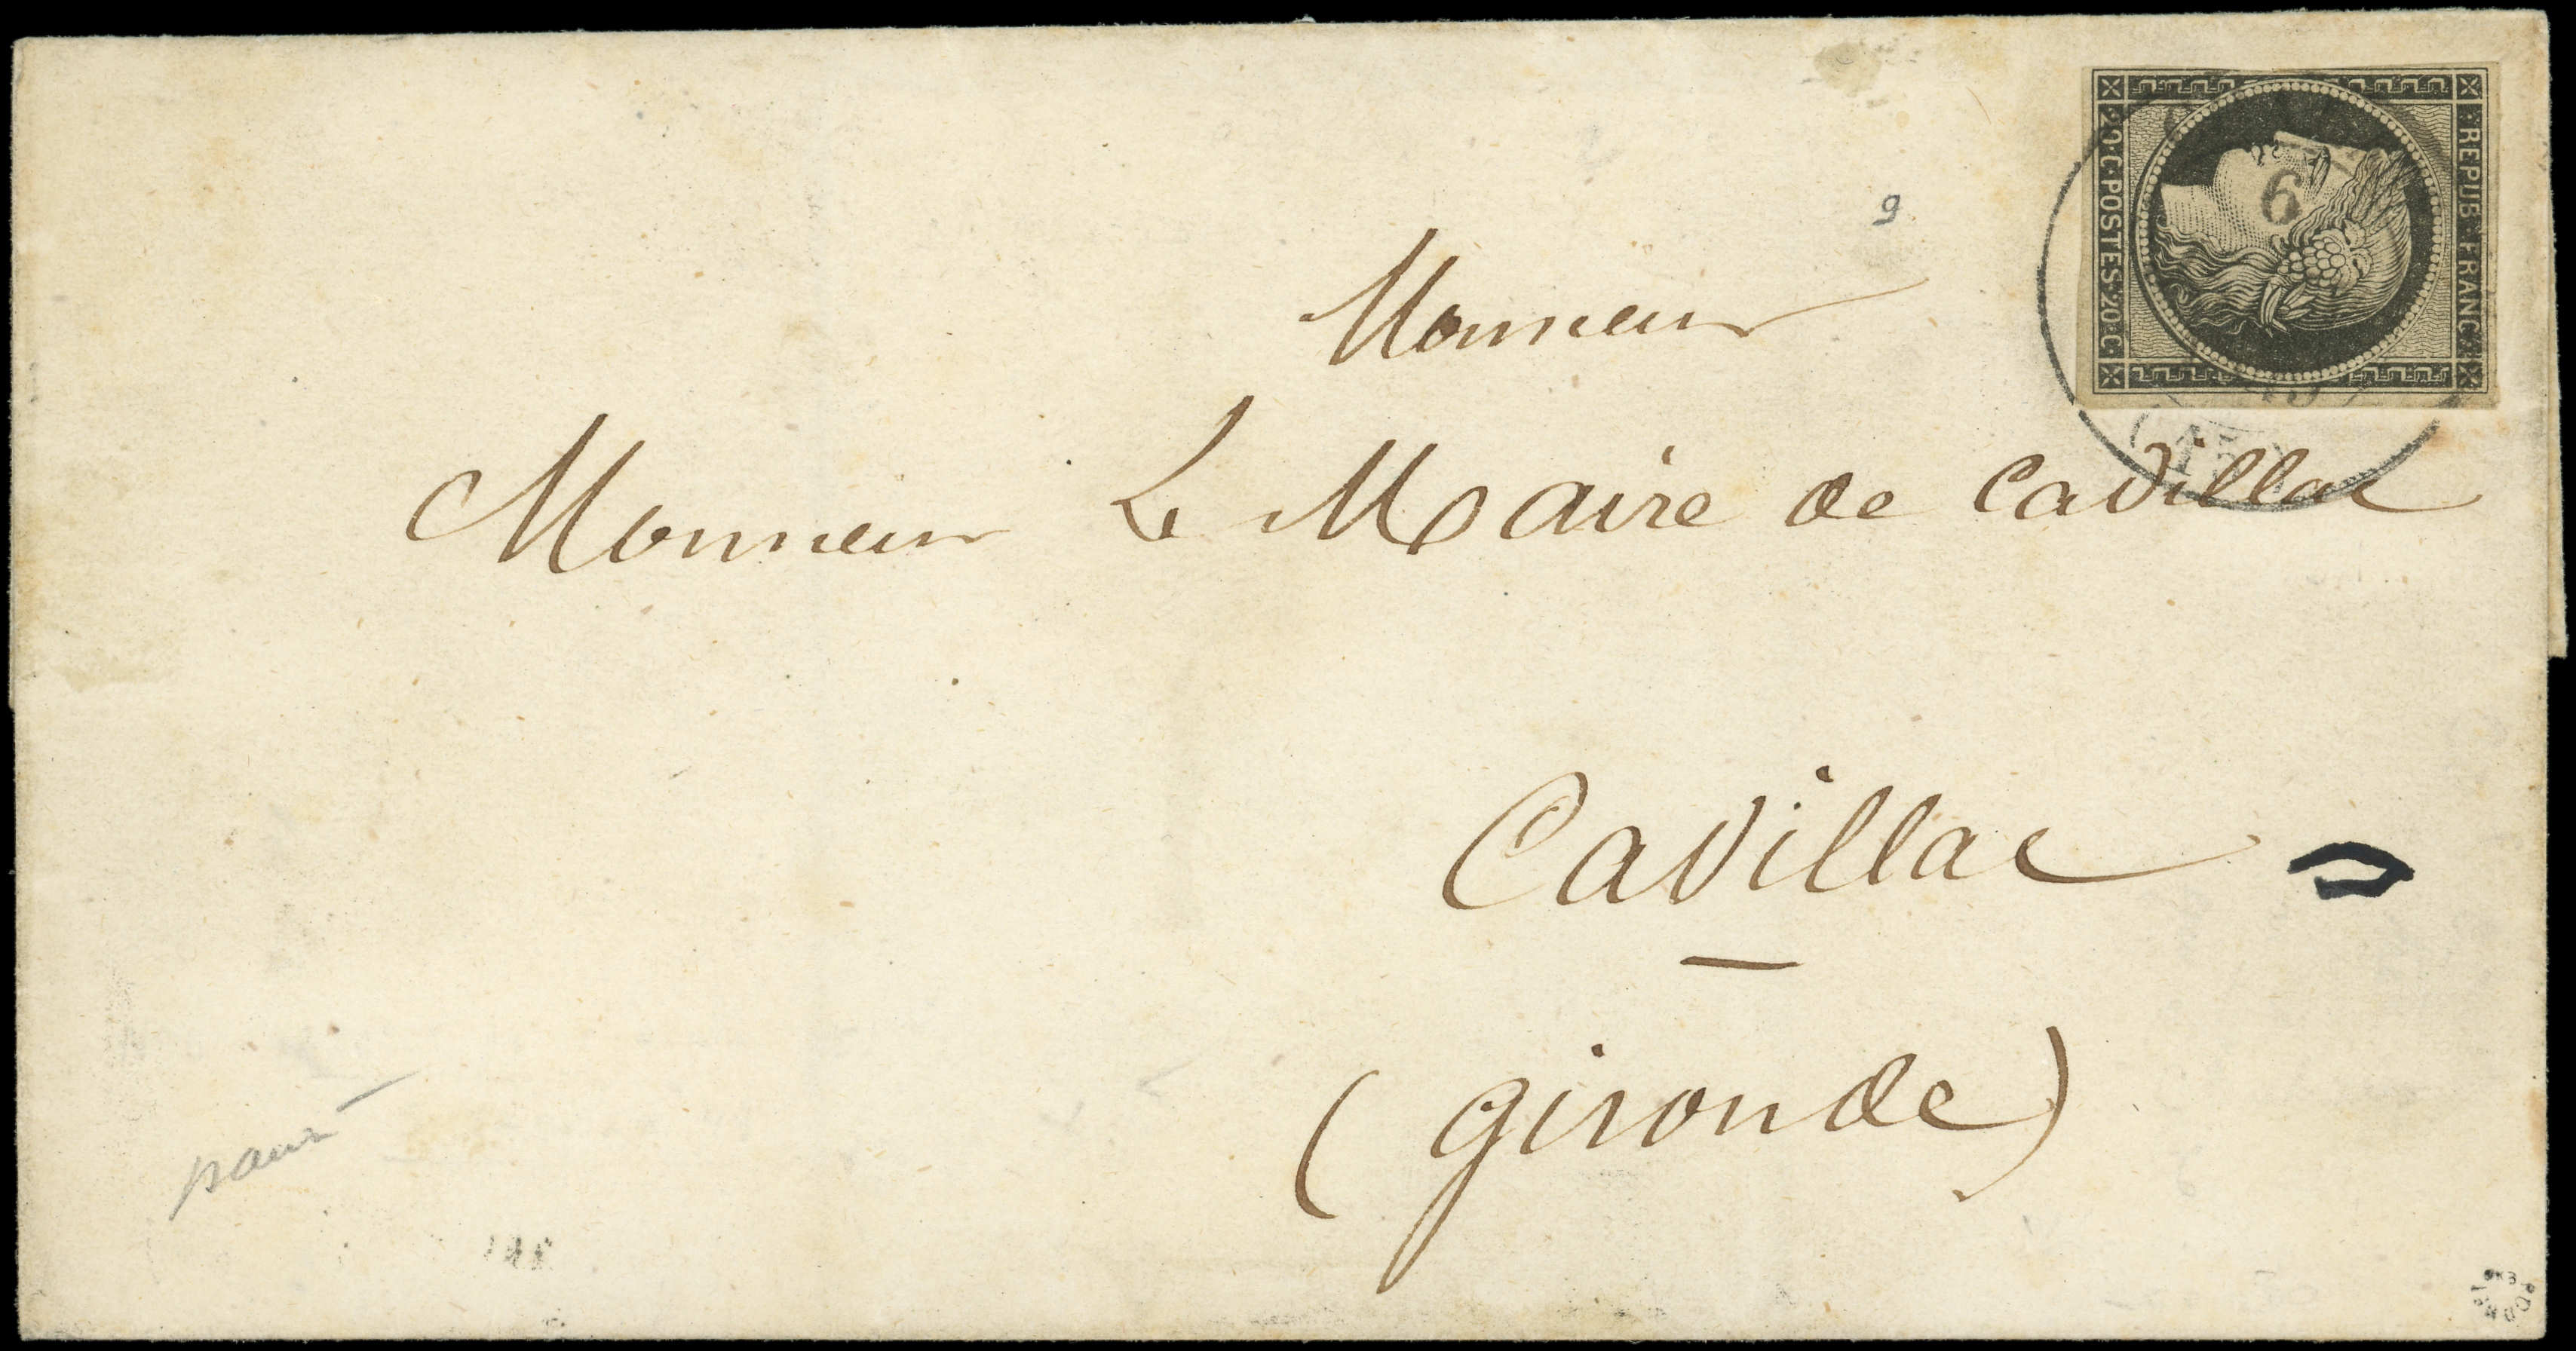 REPUB·FRANC·
20·C·POSTES·20·C·
6
9
Monsieur
Monsieur Le Maire de Cadillac
Cadillac
(gironde)